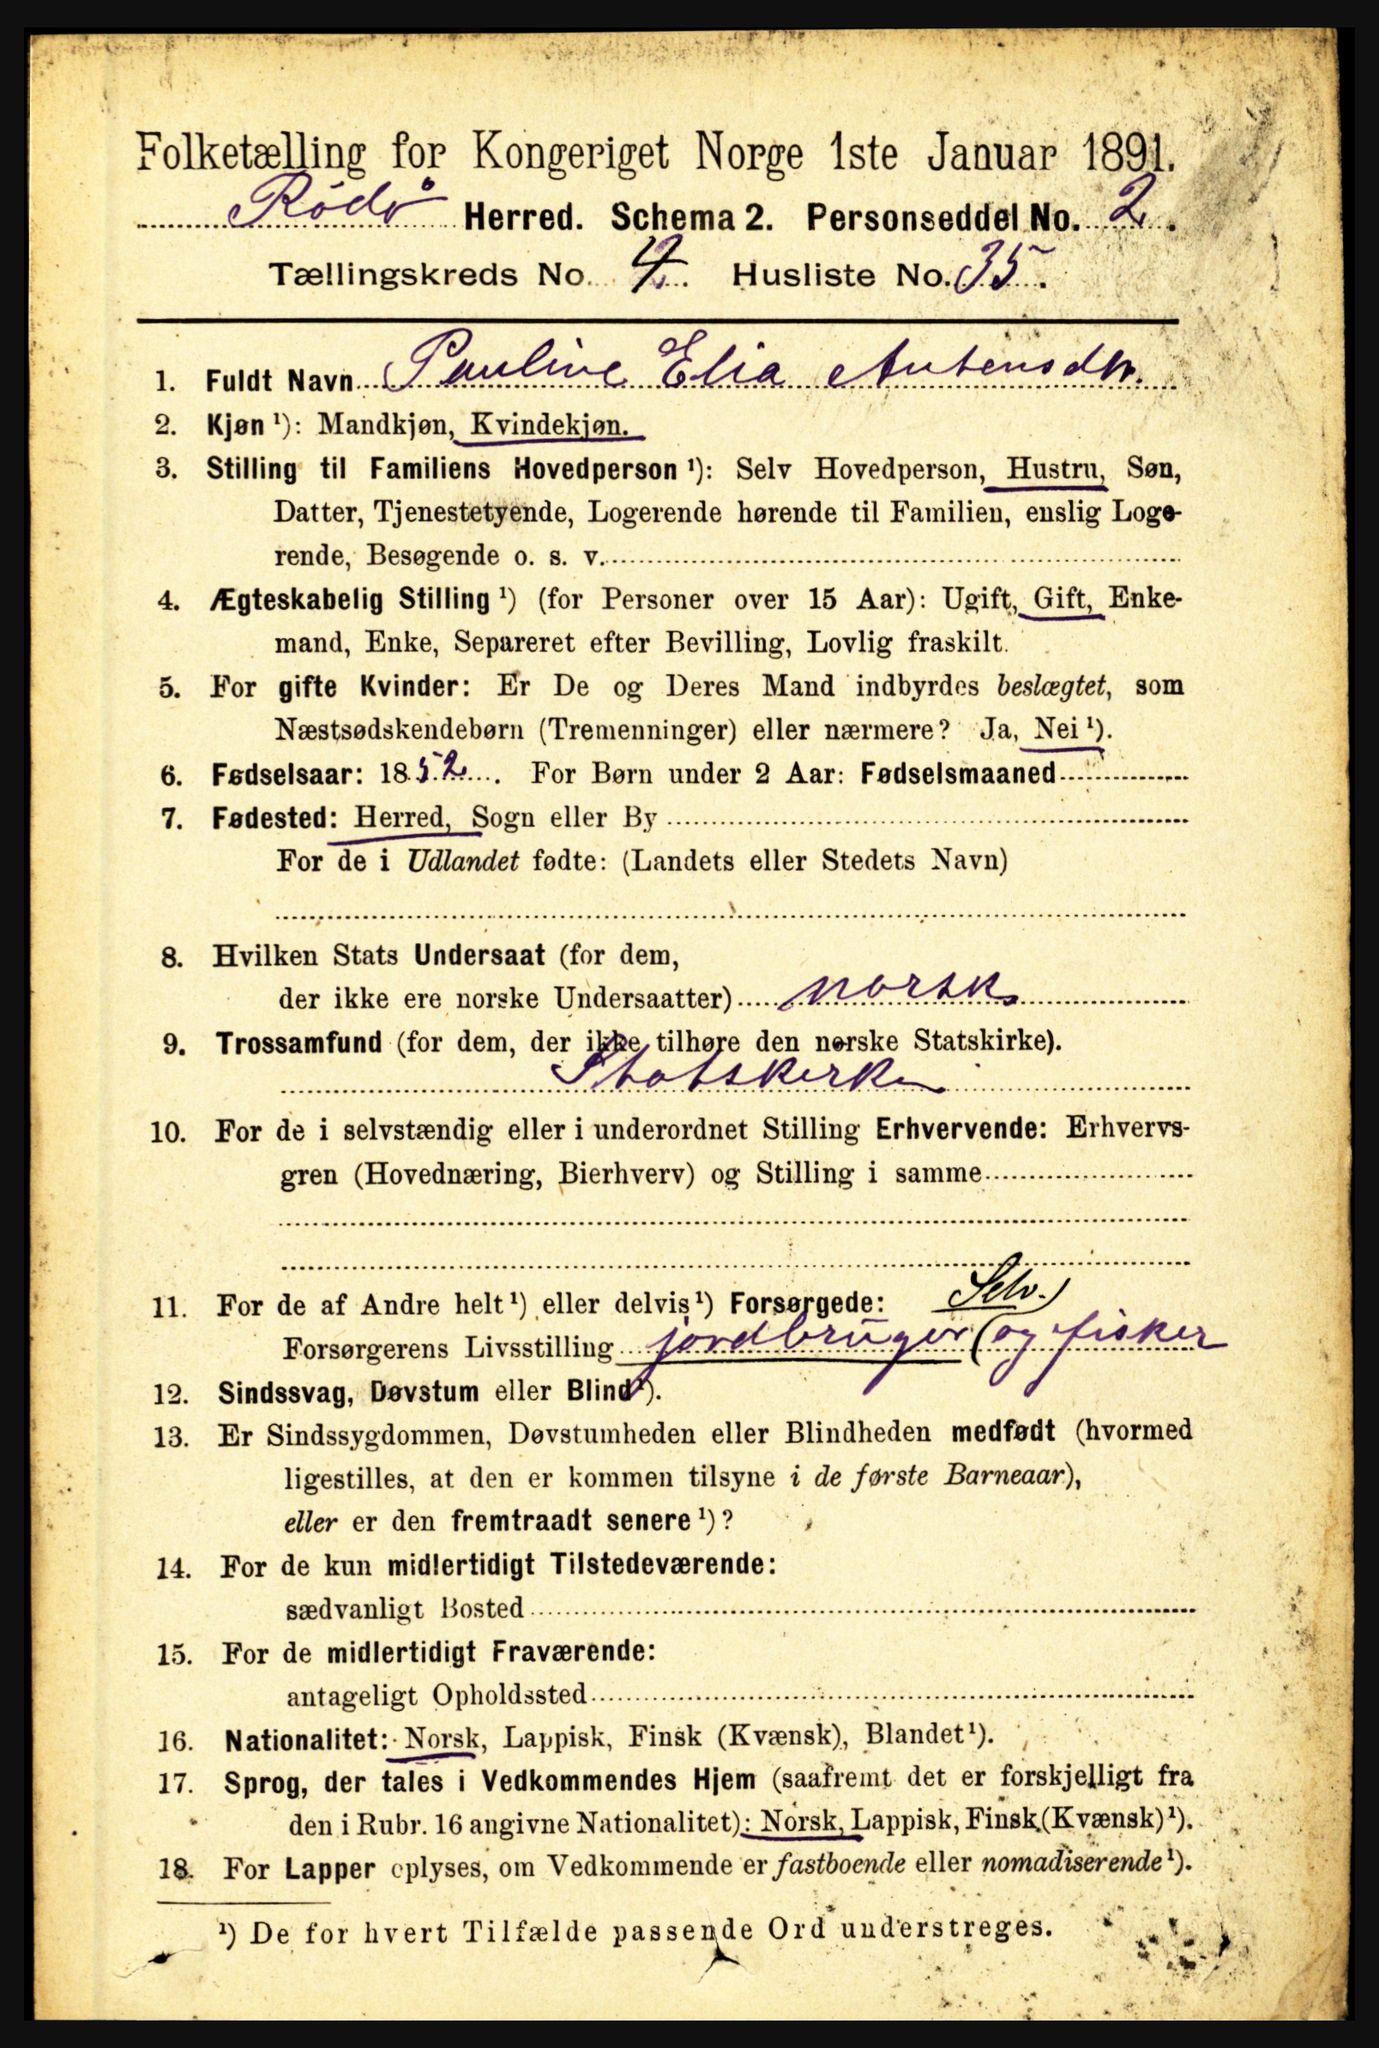 Folketælling for Kongeriget Norge 1ste Januar 1891.
Rødø Herred. Schema 2. Personseddel No. 2.
Tællingskreds No. 4. Husliste No. 35.
1. Fuldt Navn Pauline Elia Antensdtr.
2. Kjøn ¹): Mandkjøn, Kvindekjøn.
3. Stilling til Familiens Hovedperson ¹): Selv Hovedperson, Hustru, Søn,
Datter, Tjenestetyende, Logerende hørende til Familien, enslig Loge-
rende, Besøgende o. s. v.
4. Ægteskabelig Stilling ¹) (for Personer over 15 Aar): Ugift, Gift, Enke-
mand, Enke, Separeret efter Bevilling, Lovlig fraskilt.
5. For gifte Kvinder: Er De og Deres Mand indbyrdes beslægtet, som
Næstsødskendebørn (Tremenninger) eller nærmere? Ja, Nei ¹).
6. Fødselsaar: 1852. For Børn under 2 Aar: Fødselsmaaned
7. Fødested: Herred, Sogn eller By
For de i Udlandet fødte: (Landets eller Stedets Navn)
8. Hvilken Stats Undersaat (for dem,
der ikke ere norske Undersaatter) norsk
9. Trossamfund (for dem, der ikke tilhøre den norske Statskirke).
Statskirken
10. For de i selvstændig eller i underordnet Stilling Erhvervende: Erhvervs-
gren (Hovednæring, Bierhverv) og Stilling i samme
11. For de af Andre helt ¹) eller delvis ¹) Forsørgede: Selv.
Forsørgerens Livsstilling jordbruger (og fisker
12. Sindssvag, Døvstum eller Blind ¹).
13. Er Sindssygdommen, Døvstumheden eller Blindheden medfødt (hvormed
ligestilles, at den er kommen tilsyne i de første Barneaar),
eller er den fremtraadt senere ¹)?
14. For de kun midlertidigt Tilstedeværende:
sædvanligt Bosted
15. For de midlertidigt Fraværende:
antageligt Opholdssted
16. Nationalitet: Norsk, Lappisk, Finsk (Kvænsk), Blandet ¹).
17. Sprog, der tales i Vedkommendes Hjem (saafremt det er forskjelligt fra
den i Rubr. 16 angivne Nationalitet): Norsk, Lappisk, Finsk (Kvænsk) ¹).
18. For Lapper oplyses, om Vedkommende er fastboende eller nomadiserende ¹).
¹) De for hvert Tilfælde passende Ord understreges.